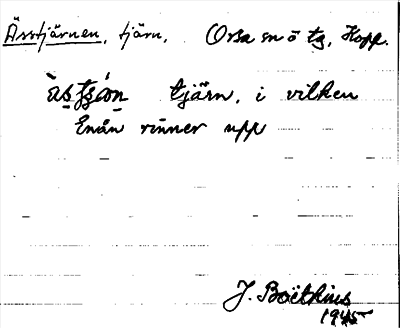 Ässtjärnen, tjärn. Orsa sn ö tg, Kopp.
tjärn, i vilken
Enån rinner upp
J. Boëthius
1945